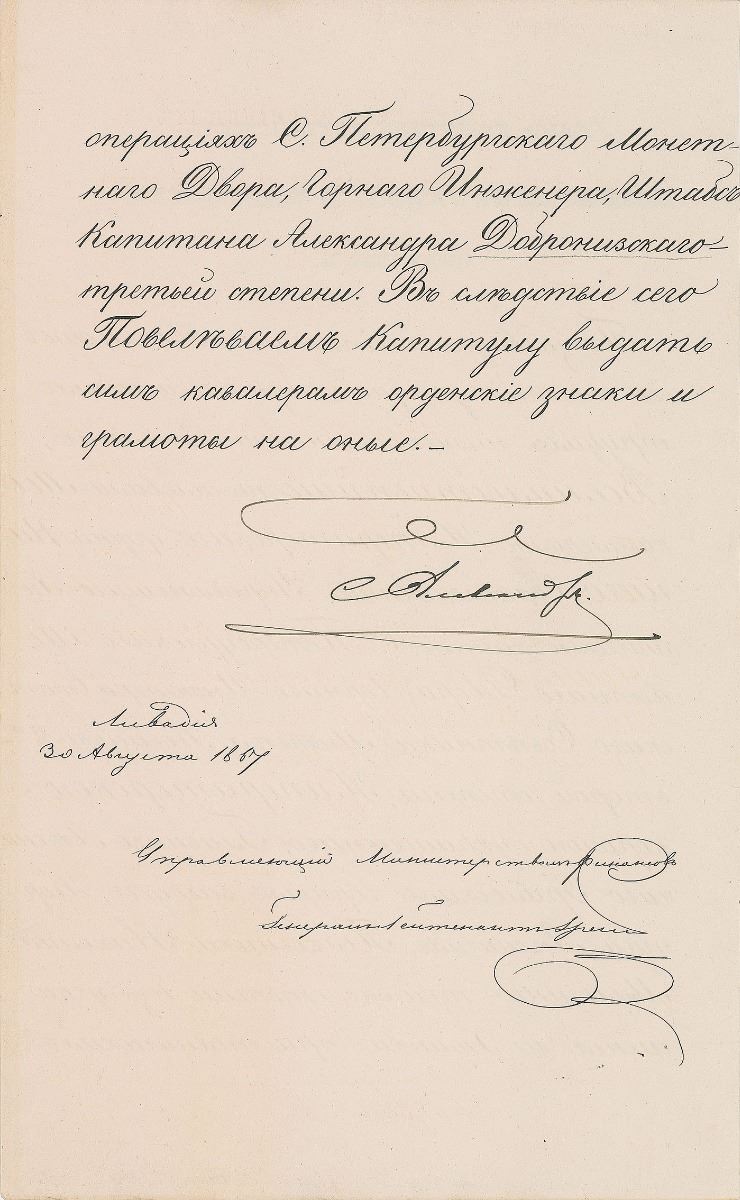 операціяхъ С. Петербургскаго Монет-
наго Двора, Горнаго Инженера, Штабсъ
Капитана Александра Добронизскаго-
третьей степени. Въ слѣдствіе сего
Повелѣваемъ Капитулу выдать
симъ кавалерамъ орденскіе знаки и
грамоты на оные.–
Александръ.
Ливадія
30 Августа 1867
Управляющій Министерствомъ Финансовъ
Генералъ Лейтенантъ Грейгъ